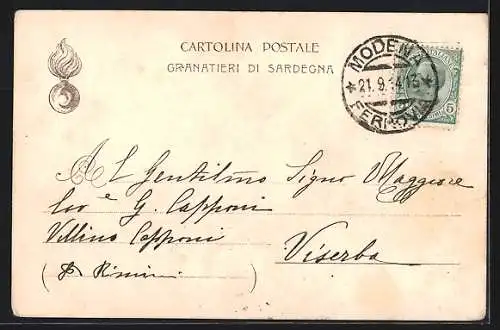 CARTOLINA POSTALE
GRANATIERI DI SARDEGNA
MODENA
21.9.14.13
FERROVIA
5
Al Gentilmo Signor Maggiore
G. Capponi
Villino Capponi
Viserba
(p. Rimini)